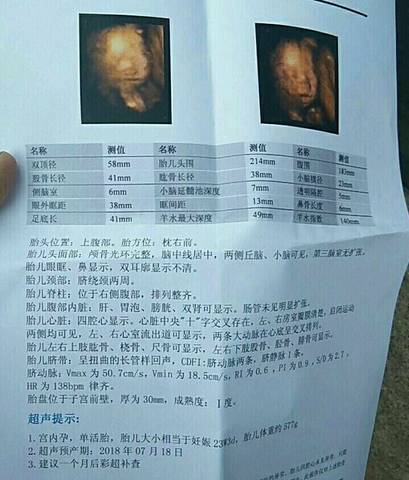 名称 测值 名称 测值 名称 测值
双顶径 58mm 胎儿头围 214mm 腹围 183mm
股骨长径 41mm 肱骨长径 38mm 小脑横径 23mm
侧脑室 6mm 小脑延髓池深度 7mm 透明隔腔 5mm
眼外眶距 38mm 眶间距 13mm 鼻骨长度 6mm
足底长 41mm 羊水最大深度 49mm 羊水指数 140mm
胎头位置：上腹部。胎方位：枕右前。
胎儿头面部：颅骨光环完整，脑中线居中，两侧丘脑、小脑可见，第三脑室无扩张。
胎儿眼眶、鼻显示，双耳廓显示不清。
胎儿颈部：脐绕颈两周。
胎儿脊柱：位于右侧腹部，排列整齐。
胎儿腹部内脏：肝、胃泡、膀胱、双肾可显示。肠管未见明显扩张。
胎儿心脏：四腔心显示。心脏中央"十"字交叉存在，左、右房室瓣膜清楚，启闭运动
两侧均可见，左、右心室流出道可显示，两条大动脉在心底呈交叉排列。
胎儿左右上肢肱骨、桡骨、尺骨可显示，左右下肢股骨、胫骨、腓骨可显示。
胎儿脐带：呈扭曲的长管样回声，CDFI：脐动脉两条，脐静脉1条，
脐动脉：Vmax为50.7cm/s，Vmin为18.5cm/s，RI为0.6，PI为0.9，S/D为2.7，
HR为138bpm 律齐。
胎盘位于子宫前壁，厚为30mm，成熟度：Ⅰ度。
超声提示：
1. 宫内孕，单活胎，胎儿大小相当于妊娠23W3d，胎儿体重约577g
2. 超声预产期：2018年07月18日
3. 建议一个月后彩超补查